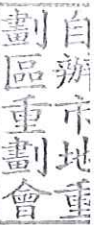 自辦市地重
劃區重劃會